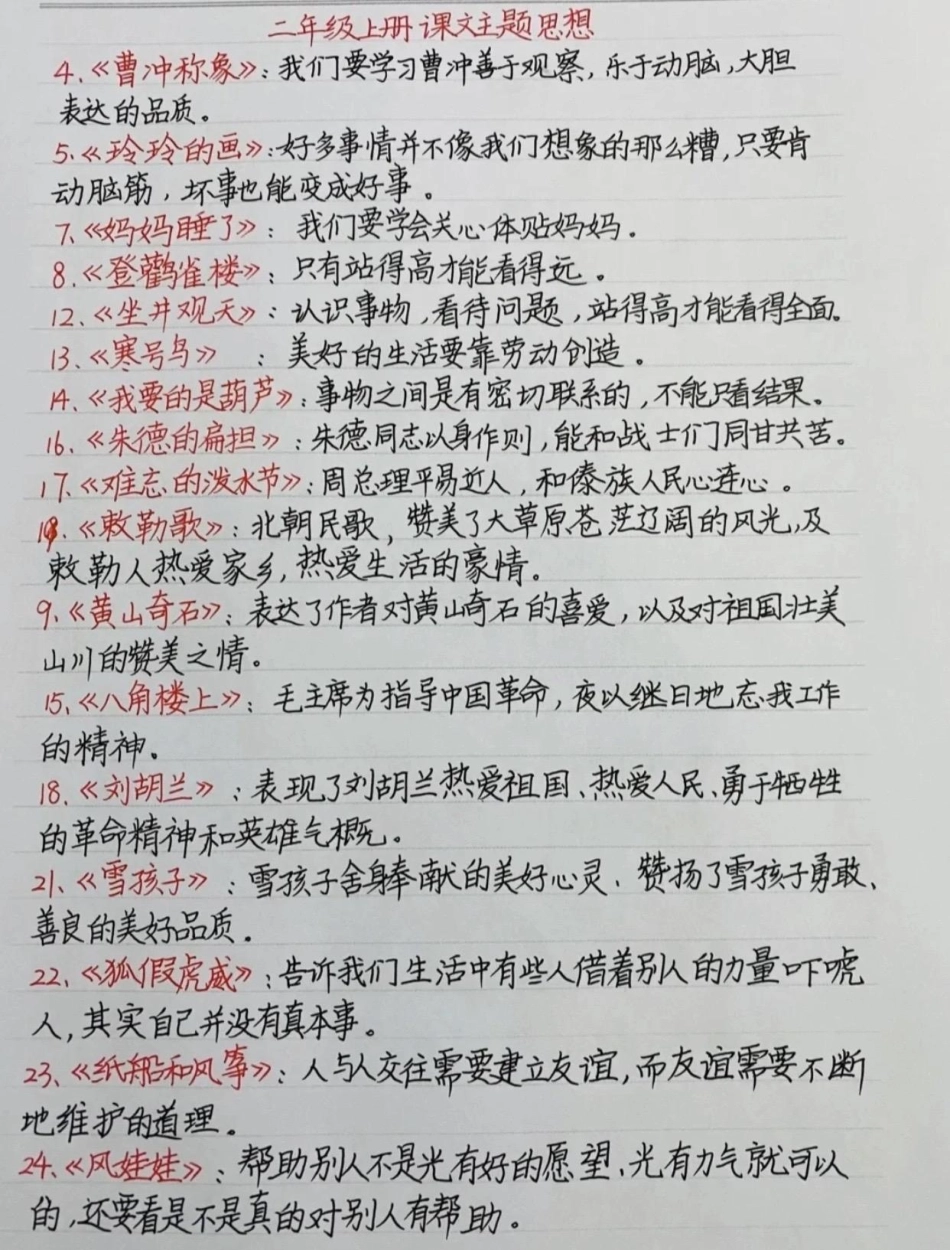 二年级上册课文主题思想
4.《曹冲称象》:我们要学习曹冲善于观察,乐于动脑,大胆
表达的品质。
5.《玲玲的画》:好多事情并不像我们想象的那么糟,只要肯
动脑筋,坏事也能变成好事。
7.《妈妈睡了》:我们要学会关心体贴妈妈。
8.《登鹳雀楼》:只有站得高才能看得远。
12.《坐井观天》:认识事物,看待问题,站得高才能看得全面。
13.《寒号鸟》:美好的生活要靠劳动创造。
14.《我要的是葫芦》:事物之间是有密切联系的,不能只看结果。
16.《朱德的扁担》:朱德同志以身作则,能和战士们同甘共苦。
17.《难忘的泼水节》:周总理平易近人,和傣族人民心连心。
19.《敕勒歌》:北朝民歌,赞美了大草原苍茫辽阔的风光,及
敕勒人热爱家乡,热爱生活的豪情。
9.《黄山奇石》:表达了作者对黄山奇石的喜爱,以及对祖国壮美
山川的赞美之情。
15.《八角楼上》:毛主席为指导中国革命,夜以继日地忘我工作
的精神.
18.《刘胡兰》:表现了刘胡兰热爱祖国、热爱人民、勇于牺牲
的革命精神和英雄气概。
21.《雪孩子》:雪孩子舍身奉献的美好心灵、赞扬了雪孩子勇敢、
善良的美好品质。
22.《狐假虎威》:告诉我们生活中有些人借着别人的力量吓唬
人,其实自己并没有真本事。
23.《纸船和风筝》:人与人交往需要建立友谊,而友谊需要不断
地维护的道理。
24.《风娃娃》:帮助别人不是光有好的愿望、光有力气就可以
的,还要看是不是真的对别人有帮助。